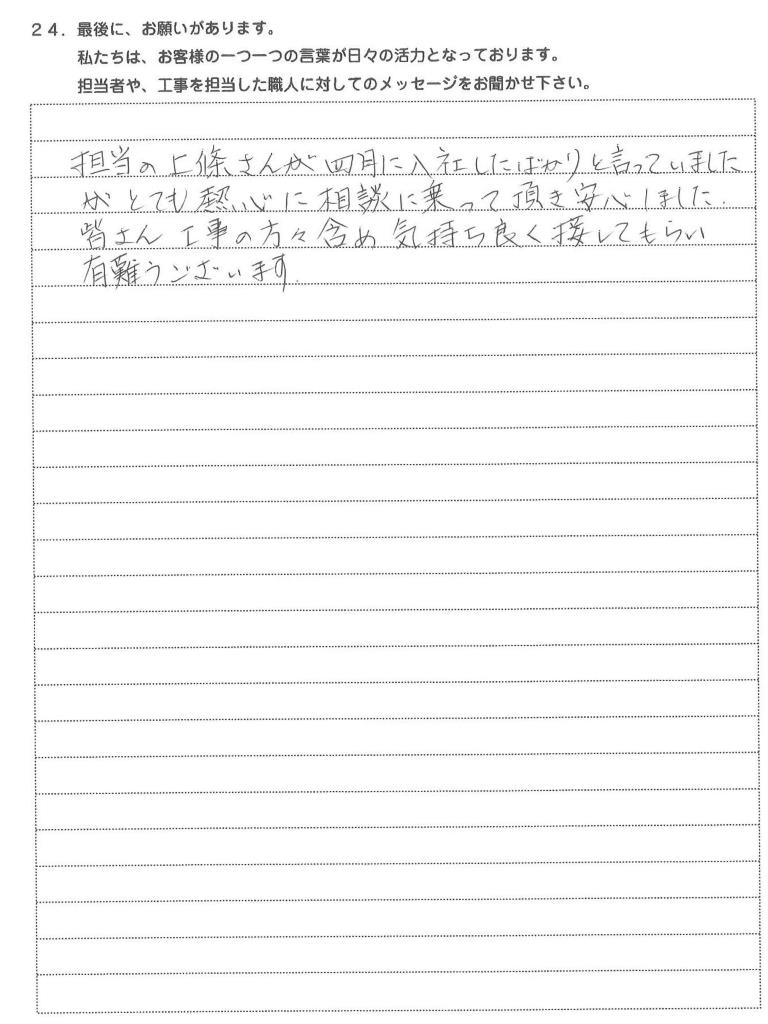 24. 最後に、お願いがあります。
私たちは、お客様の一つ一つの言葉が日々の活力となっております。
担当者や、工事を担当した職人に対してのメッセージをお聞かせ下さい。
担当の上條さんが四月に入社したばかりと言っていました
がとても熱心に相談に乗って頂き安心しました.
皆さん工事の方々含め気持ち良く接してもらい
有難うございます.